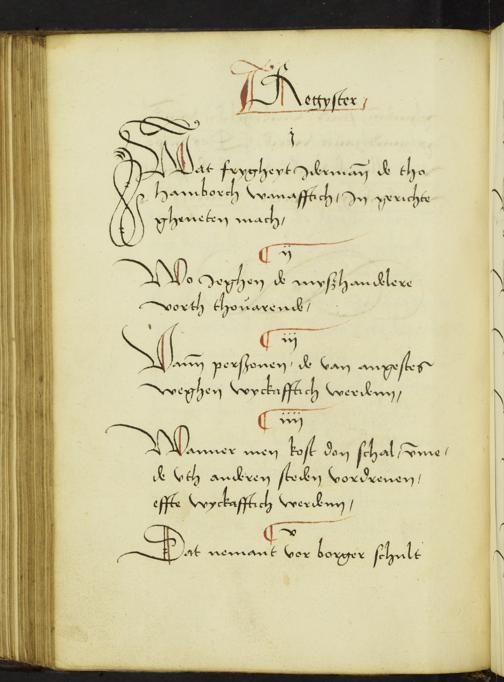 Regyster
j
Wat frygheyt Iderman̄ de tho
hamborch wanafftich, In gerichte
gheneten mach,
ij
Wo Jeghen de myszhandelere
vorth thouarende,
iij
Vann perszonen, de van angestes
weghen wyckafftich werdenn,
iiij
Wanner men kost don schal, vme,
de vth anderen steden vordreuen,
effte wyckafftich werdenn,
v
Dat nemant vor borger schult